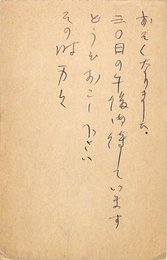 おそくなりました。
三〇日の午後お待ちしています
どうぞおこし下さい
その時 万々